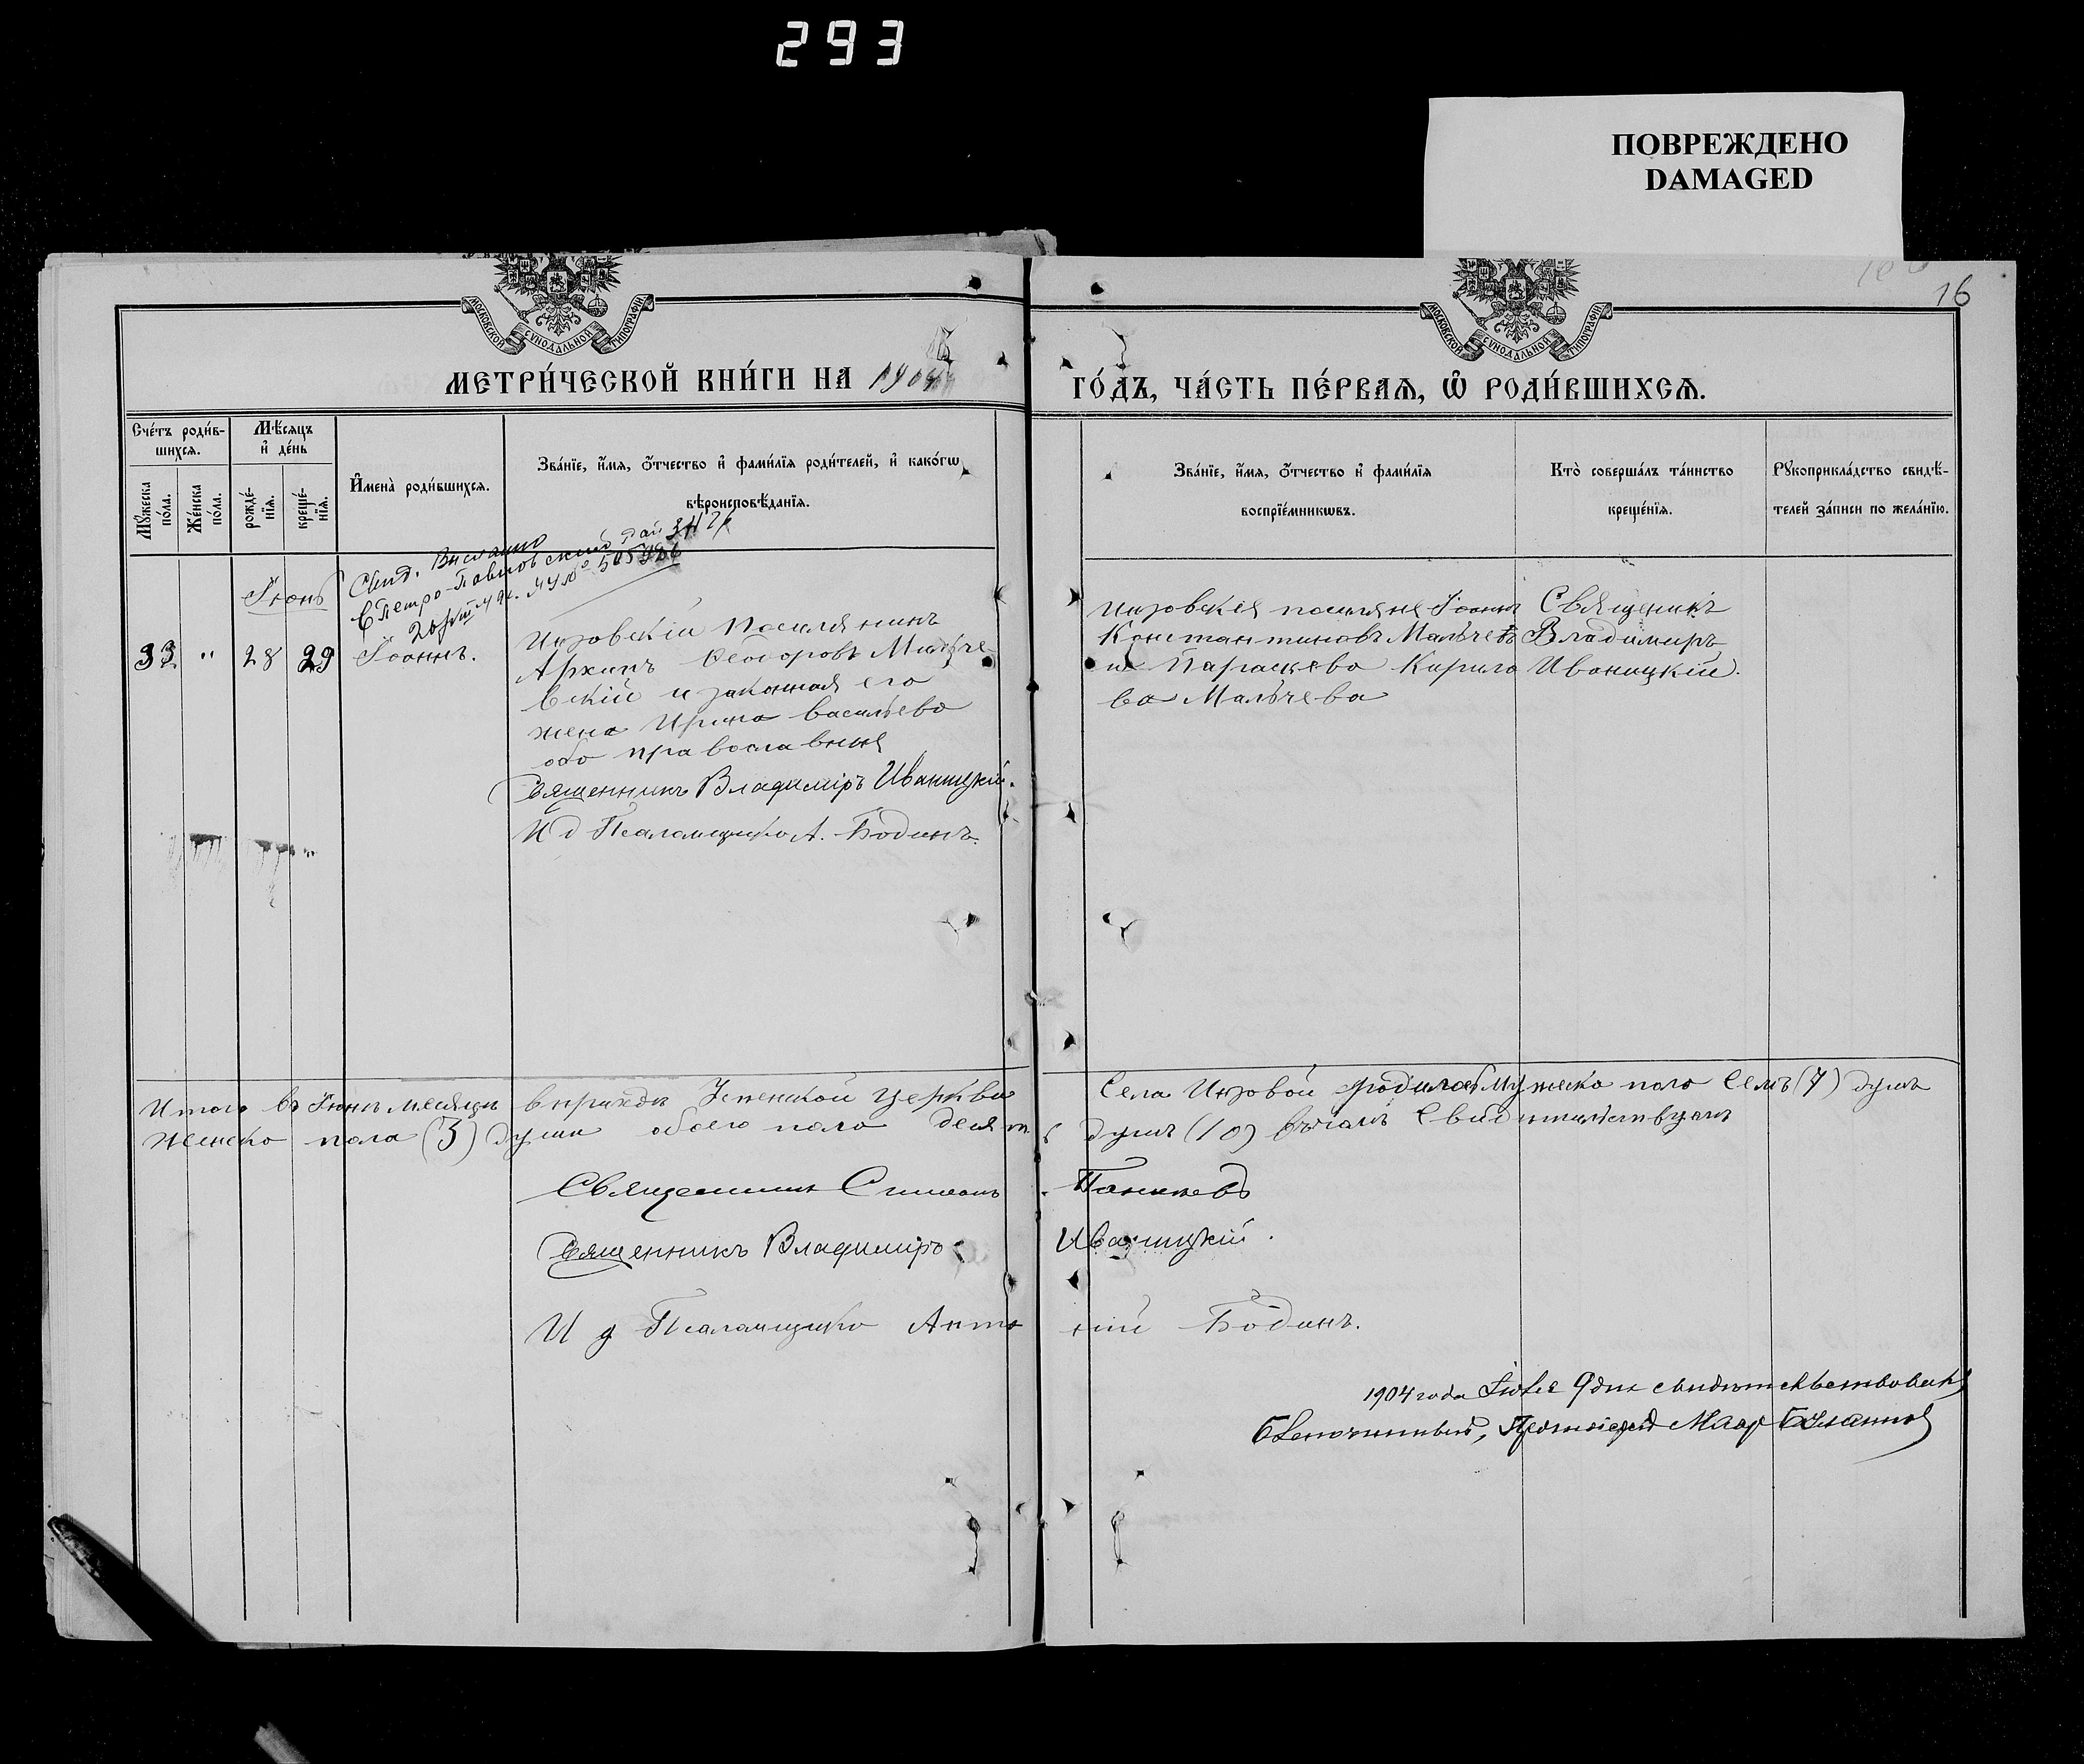 293
ПОВРЕЖДЕНО
DAMAGED
16
МОСКОВСКОЙ СѴНОДАЛЬНОЙ ТИПОГРАФІИ
МОСКОВСКОЙ СѴНОДАЛЬНОЙ ТИПОГРАФІИ
МЕТРИ́ЧЕСКОЙ КНИ́ГИ НА 1904
ГО́ДЪ, ЧА́СТЬ ПЕ́РВАѦ, Ѡ҆ РОДИ́ВШИХСѦ.
Сче́тъ роди́в-
шихсѧ.
Мꙋ́жеска по́ла.
Же́нска по́ла.
Мѣ́сяцъ
и҆ де́нь
рожде́-
нїѧ.
креще́-
нїѧ.
И҆мена̀ роди́вшихсѧ.
Зва́нїе, и҆́мѧ, ѻ҆́тчество и҆ фами́лїѧ роди́телей, и҆ како́гѡ
вѣроисповѣ́данїѧ.
Зва́нїе, и҆́мѧ, ѻ҆́тчество и҆ фами́лїѧ
воспрїе́мникѡвъ.
Кто̀ соверша́лъ та́инство
креще́нїѧ.
Рꙋкоприкла́дство свидѣ́-
телей за́писи по жела́нїю.
Свид. Выслано
в Петро-Павловский рай
Іюнь
33. " 28 29 Іоаннъ.
Инзовскій поселянинъ
Архипъ Ѳеодоровъ Мальче
вскій и законная его
жена Ирина Васильева
оба православныя
Священникъ Владиміръ Иваницкій.
И д Псаломщика А. Бодинъ.
Инзовскія поселяне Іоаннъ
Константиновъ Мальчевъ
и Параскева Кирило
ва Мальчева
Священикъ
Владимиръ
Иваницкій.
Итого въ Іюнь месяцъ в приходъ Успенской церкви Села Инзовой родилось Мужеска пола Семъ (7) душъ
женска пола (3) души обоего пола десять душъ (10) въ чемъ Свидительствуемъ
Священник Симеонъ
Священникъ Владиміръ Иваницкій.
И д Псаломщика Антоній Бодинъ.
1904 года Іюля 9 дня свидѣтельствовалъ
Благочинный, Протоіерей